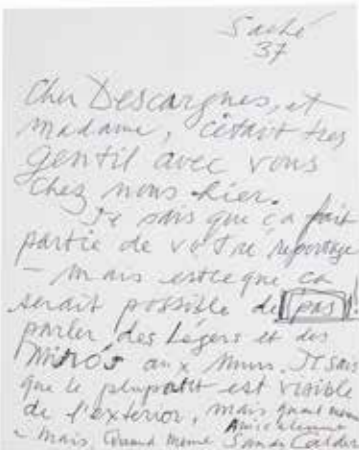 Saché
37
Cher Descargues, et
madame, c'etait tres
gentil avec vous
chez nous hier.
Je sais que ça fait
partie de votre reportage
- mais estce que ca
serait possible de pas!
parler des Légers et des
Mirós aux murs. Je sais
que le plupart est visible
de l'exterior, mais quand meme
- Mais, quand meme Sandy Calder